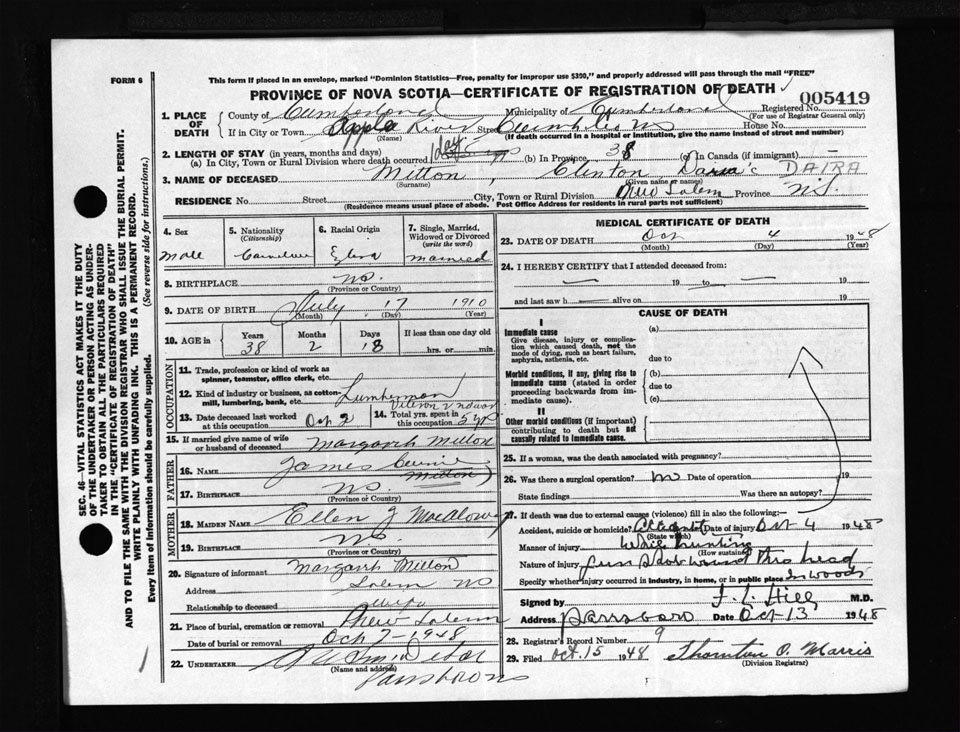 FORM 6
This form if placed in an envelope, marked "Dominion Statistics—Free, penalty for improper use $300," and properly addressed will pass through the mail "FREE"
PROVINCE OF NOVA SCOTIA—CERTIFICATE OF REGISTRATION OF DEATH
005419
1. PLACE OF DEATH
County of Cumberland Municipality of Cumberland Registered No.
(For use of Registrar General only)
If in City or Town Apple River Street House No.
(Name) (If death occurred in a hospital or institution, give the name instead of street and number)
2. LENGTH OF STAY (in years, months and days)
(a) In City, Town or Rural Division where death occurred 1 day (b) In Province 38 (c) In Canada (if immigrant) —
3. NAME OF DECEASED Mitton, Clinton DAIRA
(Surname) (Given name or names)
RESIDENCE No. Street City, Town or Rural Division New Salem Province N.S.
(Residence means usual place of abode. Post Office Address for residents in rural parts not sufficient)
4. Sex
male
5. Nationality
(Citizenship)
Canadian
6. Racial Origin
7. Single, Married, Widowed or Divorced
(write the word)
married
8. BIRTHPLACE N.S.
(Province or Country)
9. DATE OF BIRTH July 17 1910
(Month) (Day) (Year)
10. AGE in
Years Months Days If less than one day old
38 2 18 hrs. or min.
OCCUPATION
11. Trade, profession or kind of work as spinner, teamster, office clerk, etc.
12. Kind of industry or business, as cotton-mill, lumbering, bank, etc. Lumberman
13. Date deceased last worked at this occupation Oct 2
14. Total yrs. spent in this occupation 5 yr
15. If married give name of wife or husband of deceased Margaret Mitton
FATHER
16. NAME James Mitton
17. BIRTHPLACE N.S.
(Province or Country)
MOTHER
18. MAIDEN NAME Ellen J
19. BIRTHPLACE N.S.
(Province or Country)
20. Signature of informant Margaret Mitton
Address Salem NS
Relationship to deceased wife
21. Place of burial, cremation or removal New Salem
Date of burial or removal Oct 7 - 1948
22. UNDERTAKER
(Name and address)
Parrsboro NS
MEDICAL CERTIFICATE OF DEATH
23. DATE OF DEATH Oct 4 1948
(Month) (Day) (Year)
24. I HEREBY CERTIFY that I attended deceased from:
— 19 to — 19
and last saw h — alive on — 19
CAUSE OF DEATH
I
Immediate cause
Give disease, injury or complication which caused death, not the mode of dying, such as heart failure, asphyxia, asthenia, etc.
(a)
due to
Morbid conditions, if any, giving rise to immediate cause (stated in order proceeding backwards from immediate cause).
(b)
due to
(c)
II
Other morbid conditions (if important) contributing to death but not causally related to immediate cause.
25. If a woman, was the death associated with pregnancy?
26. Was there a surgical operation? no Date of operation 19
State findings Was there an autopsy?
27. If death was due to external causes (violence) fill in also the following:—
Accident, suicide or homicide? accident Date of injury Oct 4 1948
(State which)
Manner of injury while hunting
(How sustained)
Nature of injury gun shot wound thro head
Specify whether injury occurred in industry, in home, or in public place In woods
Signed by F. L. Hill M.D.
Address Parrsboro Date Oct 13 1948
28. Registrar's Record Number 9
29. Filed Oct. 15 1948 Thornton O. Marris
(Division Registrar)
SEC. 46—VITAL STATISTICS ACT MAKES IT THE DUTY
OF THE UNDERTAKER OR PERSON ACTING AS UNDER-
TAKER TO OBTAIN ALL THE PARTICULARS REQUIRED
IN THE "CERTIFICATE OF REGISTRATION OF DEATH"
AND TO FILE THE SAME WITH THE DIVISION REGISTRAR WHO SHALL ISSUE THE BURIAL PERMIT.
WRITE PLAINLY WITH UNFADING INK. THIS IS A PERMANENT RECORD.
Every item of information should be carefully supplied. (See reverse side for instructions.)